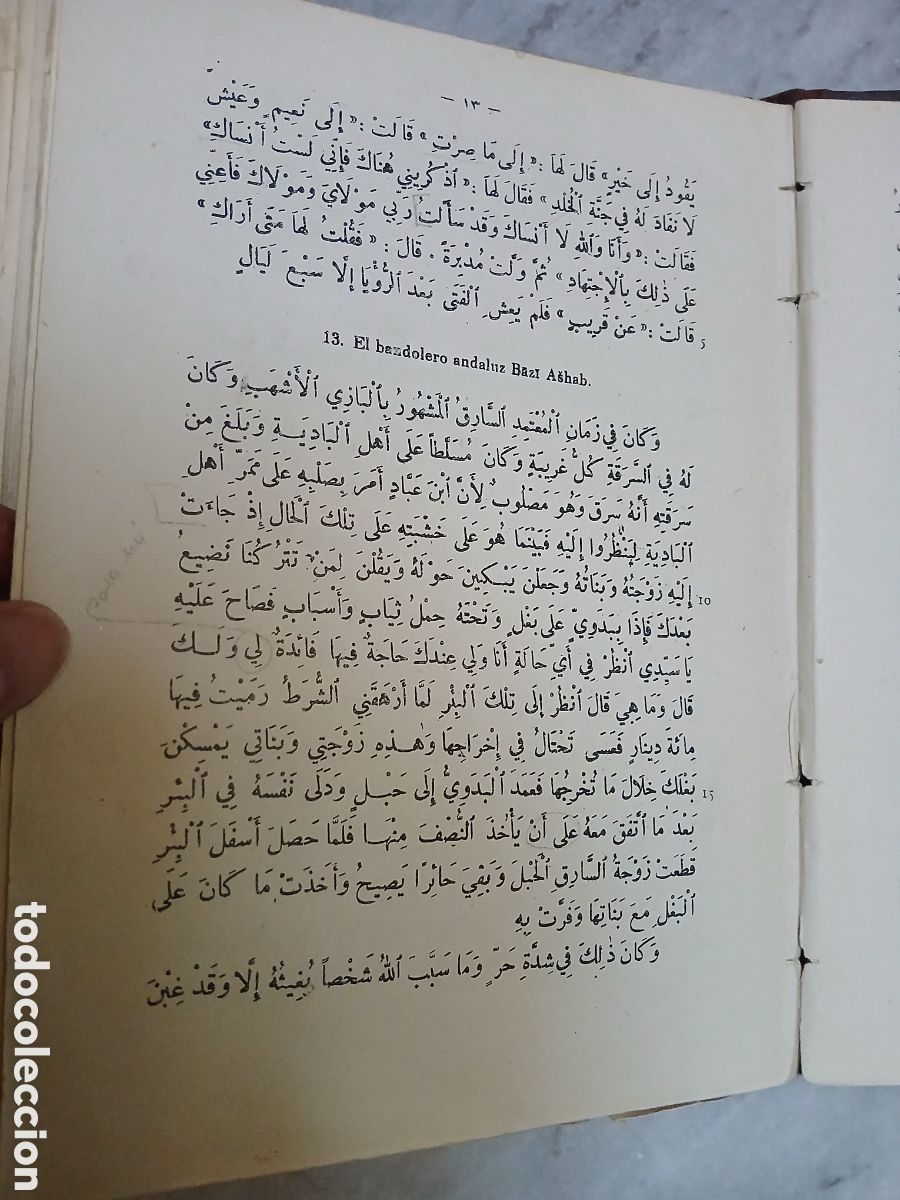 — ١٣ —
يَقُودُ إِلَى خَيْرٍ» قَالَ لَهَا: «إِلَى مَا صِرْتِ» قَالَتْ: «إِلَى نَعِيمٍ وَعَيْشٍ
لَا نَفَادَ لَهُ فِي جَنَّةِ ٱلْخُلْدِ» فَقَالَ لَهَا: «ٱذْكُرِينِي هُنَاكَ فَإِنِّي لَسْتُ أَنْسَاكِ»
فَقَالَتْ: «وَأَنَا وَٱللهِ لَا أَنْسَاكَ وَقَدْ سَأَلْتُ رَبِّي مَوْلَايَ وَمَوْلَاكَ فَأَعِنِّي
عَلَى ذٰلِكَ بِٱلْإِجْتِهَادِ» ثُمَّ وَلَّتْ مُدْبِرَةً. قَالَ: «فَقُلْتُ لَهَا مَتَى أَرَاكِ»
قَالَتْ: «عَنْ قَرِيبٍ» فَلَمْ يَعِشِ ٱلْفَتَى بَعْدَ ٱلرُّؤْيَا إِلَّا سَبْعَ لَيَالٍ 5
13. El bandolero andaluz Bāzī Ašhab.
وَكَانَ فِي زَمَانِ ٱلْمُعْتَمِدِ ٱلسَّارِقُ ٱلْمَشْهُورُ بِٱلْبَازِي ٱلْأَشْهَبِ وَكَانَ
لَهُ فِي ٱلسَّرَقَةِ كُلُّ غَرِيبَةٍ وَكَانَ مُسَلَّطاً عَلَى أَهْلِ ٱلْبَادِيَةِ وَبَلَغَ مِنْ
سَرَقَتِهِ أَنَّهُ سَرَقَ وَهُوَ مَصْلُوبٌ لِأَنَّ ٱبْنَ عَبَّادٍ أَمَرَ بِصَلْبِهِ عَلَى مَمَرِّ أَهْلِ
ٱلْبَادِيَةِ لِيَنْظُرُوا إِلَيْهِ فَبَيْنَمَا هُوَ عَلَى خَشَبَتِهِ عَلَى تِلْكَ ٱلْحَالِ إِذْ جَاءَتْ
إِلَيْهِ زَوْجَتُهُ وَبَنَاتُهُ وَجَعَلْنَ يَبْكِينَ حَوْلَهُ وَيَقُلْنَ لِمَنْ تَتْرُكُنَا نَضِيعُ 10
بَعْدَكَ فَإِذَا بِبَدَوِيٍّ عَلَى بَغْلٍ وَتَحْتَهُ حِمْلُ ثِيَابٍ وَأَسْبَابٍ فَصَاحَ عَلَيْهِ
يَا سَيِّدِي ٱنْظُرْ فِي أَيِّ حَالَةٍ أَنَا وَلِي عِنْدَكَ حَاجَةٌ فِيهَا فَائِدَةٌ لِي وَلَكَ
قَالَ وَمَا هِيَ قَالَ ٱنْظُرْ إِلَى تِلْكَ ٱلْبِئْرِ لَمَّا أَرْهَقَنِي ٱلشُّرَطُ رَمَيْتُ فِيهَا
مِائَةَ دِينَارٍ فَعَسَى تَحْتَالُ فِي إِخْرَاجِهَا وَهٰذِهِ زَوْجَتِي وَبَنَاتِي يَمْسِكْنَ
بَغْلَكَ خِلَالَ مَا تُخْرِجُهَا فَعَمَدَ ٱلْبَدَوِيُّ إِلَى حَبْلٍ وَدَلَى نَفْسَهُ فِي ٱلْبِئْرِ 15
بَعْدَ مَا ٱتَّفَقَ مَعَهُ عَلَى أَنْ يَأْخُذَ ٱلنِّصْفَ مِنْهَا فَلَمَّا حَصَلَ أَسْفَلَ ٱلْبِئْرِ
قَطَعَتْ زَوْجَةُ ٱلسَّارِقِ ٱلْحَبْلَ وَبَقِيَ حَائِرًا يَصِيحُ وَأَخَذَتْ مَا كَانَ عَلَى
ٱلْبَغْلِ مَعَ بَنَاتِهَا وَفَرَّتْ بِهِ
وَكَانَ ذٰلِكَ فِي شِدَّةِ حَرٍّ وَمَا سَبَّبَ ٱللهُ شَخْصاً يُغِيثُهُ إِلَّا وَقَدْ غِبْنَ
todocoleccion